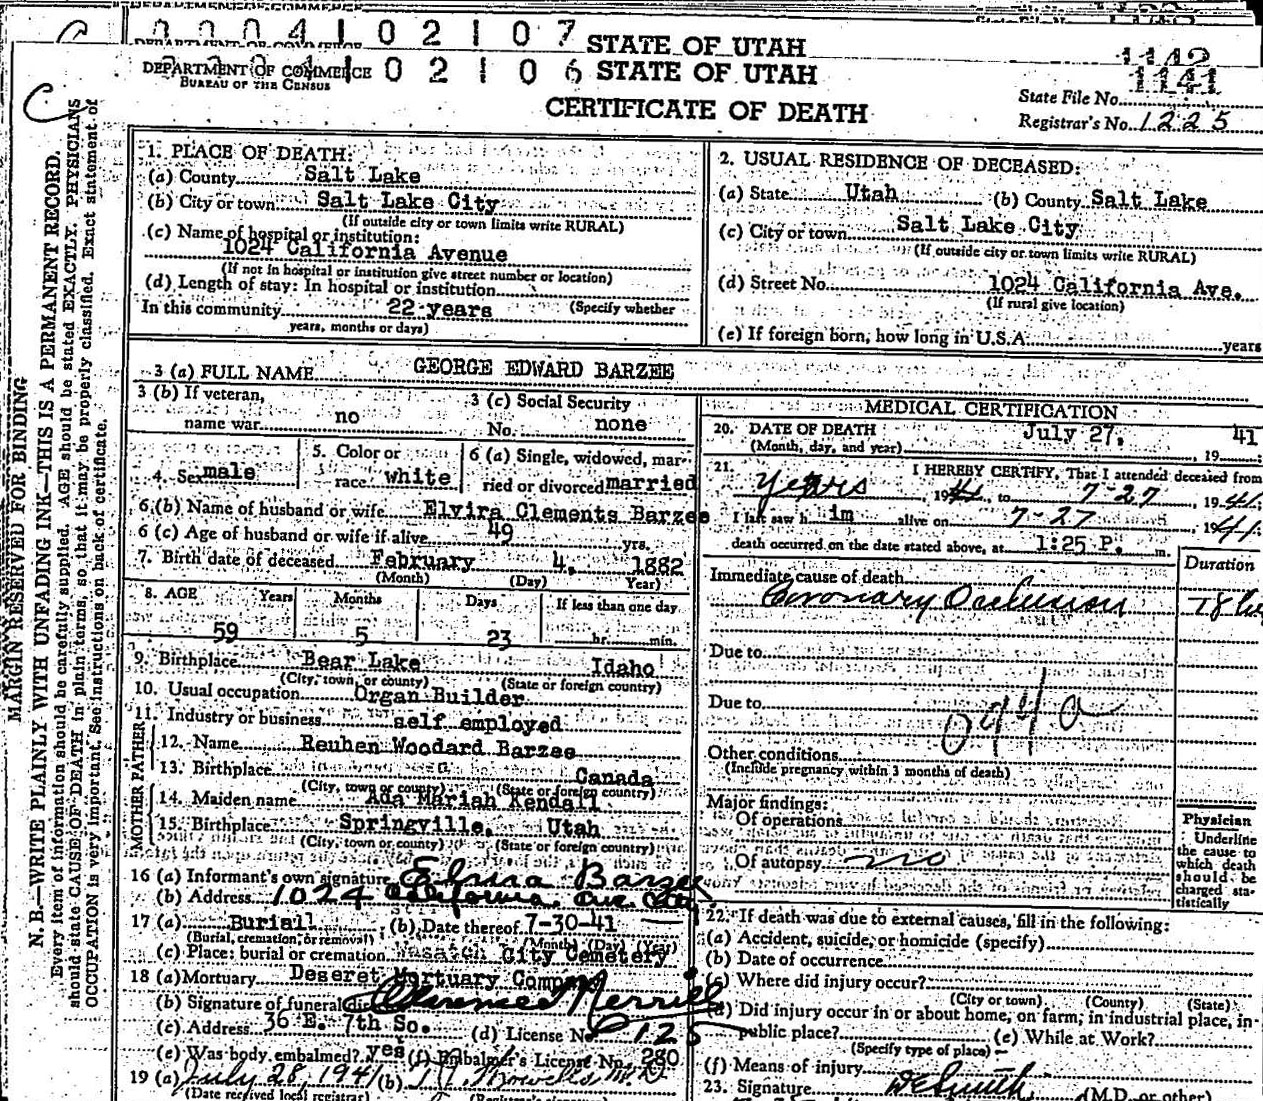 DEPARTMENT OF COMMERCE
0 0 0 4 1 0 2 1 0 7 STATE OF UTAH
1142
DEPARTMENT OF COMMERCE 1 0 2 1 0 6 STATE OF UTAH
1141
BUREAU OF THE CENSUS
State File No.
CERTIFICATE OF DEATH
Registrar's No. 1225
C
MARGIN RESERVED FOR BINDING
N. B.—WRITE PLAINLY WITH UNFADING INK—THIS IS A PERMANENT RECORD.
Every item of information should be carefully supplied. AGE should be stated EXACTLY. PHYSICIANS
should state CAUSE OF DEATH in plain terms, so that it may be properly classified. Exact statement of
OCCUPATION is very important. See instructions on back of certificate.
1. PLACE OF DEATH:
(a) County Salt Lake
(b) City or town Salt Lake City
(If outside city or town limits write RURAL)
(c) Name of hospital or institution:
1024 California Avenue
(If not in hospital or institution give street number or location)
(d) Length of stay: In hospital or institution
In this community 22 years (Specify whether
years, months or days)
2. USUAL RESIDENCE OF DECEASED:
(a) State Utah (b) County Salt Lake
(c) City or town Salt Lake City
(If outside city or town limits write RURAL)
(d) Street No. 1024 California Ave.
(If rural give location)
(e) If foreign born, how long in U.S.A. years
3 (a) FULL NAME GEORGE EDWARD BARZEE
3 (b) If veteran, name war no
3 (c) Social Security No. none
4. Sex male
5. Color or race white
6 (a) Single, widowed, married or divorced married
6 (b) Name of husband or wife Elvira Clements Barzee
6 (c) Age of husband or wife if alive 49 yrs.
7. Birth date of deceased February 4, 1882
(Month) (Day) Year)
8. AGE Years Months Days If less than one day
59 5 23 hr. min.
9. Birthplace Bear Lake Idaho
(City, town, or county) (State or foreign country)
10. Usual occupation Organ Builder
11. Industry or business self employed
FATHER
12. Name Reuben Woodard Barzee
13. Birthplace Canada
(City, town or county) (State or foreign country)
MOTHER
14. Maiden name Ada Mariah Kendall
15. Birthplace Springville, Utah
(City, town or county) (State or foreign country)
16 (a) Informant's own signature Elvira Barzee
(b) Address 1024 California Ave. City
17 (a) Burial (b) Date thereof 7-30-41
(Burial, cremation, or removal) (Month) (Day) (Year)
(c) Place: burial or cremation Wasatch City Cemetery
18 (a) Mortuary Deseret Mortuary Company
(b) Signature of funeral Clarence Merrill
(c) Address 36 E. 7th So. (d) License No. 125
(e) Was body embalmed? yes (f) Embalmer's License No. 280
19 (a) July 28, 1941 (b)
(Date received local registrar)
MEDICAL CERTIFICATION
20. DATE OF DEATH July 27, 19 41
(Month, day, and year)
21. I HEREBY CERTIFY, That I attended deceased from
years, 19 to 7-27, 1941
I last saw him alive on 7-27 1941
death occurred on the date stated above, at 1:25 P. m.
Duration
Immediate cause of death
Coronary Occlusion
Due to
Due to
094a
Other conditions
(Include pregnancy within 3 months of death)
Major findings:
Of operations
Of autopsy no
Physician
Underline
the cause to
which death
should be
charged sta-
tistically
22. If death was due to external causes, fill in the following:
(a) Accident, suicide, or homicide (specify)
(b) Date of occurrence
(c) Where did injury occur?
(City or town) (County) (State)
(d) Did injury occur in or about home, on farm, in industrial place, in-
public place? (e) While at Work?
(Specify type of place)
(f) Means of injury
23. Signature (M.D. or other)